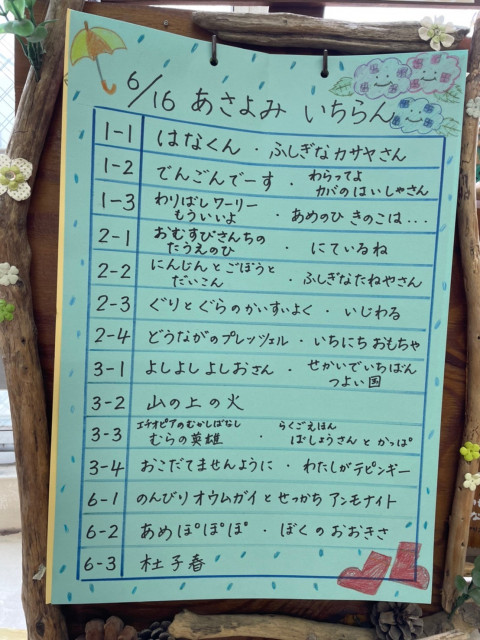 6/16 あさよみ いちらん
1-1 はなくん・ふしぎなカサやさん
1-2 でんごんでーす・わらってよ カバのはいしゃさん
1-3 わりばしワーリー もういいよ・あめのひ きのこは...
2-1 おむすびさんちの たうえのひ・にているね
2-2 にんじんとごぼうと だいこん・ふしぎなたねやさん
2-3 ぐりとぐらのかいすいよく・いじわる
2-4 どうながのプレッツェル・いちにちおもちゃ
3-1 よしよしよしおさん・せかいでいちばん つよい国
3-2 山の上の火
3-3 エチオピアのむかしばなし むらの英雄・らくごえほん ばしょうさんとかっぱ
3-4 おこだてませんように・わたしがテピンギー
6-1 のんびりオウムガイとせっかちアンモナイト
6-2 あめぽぽぽ・ぼくのおおきさ
6-3 杜子春